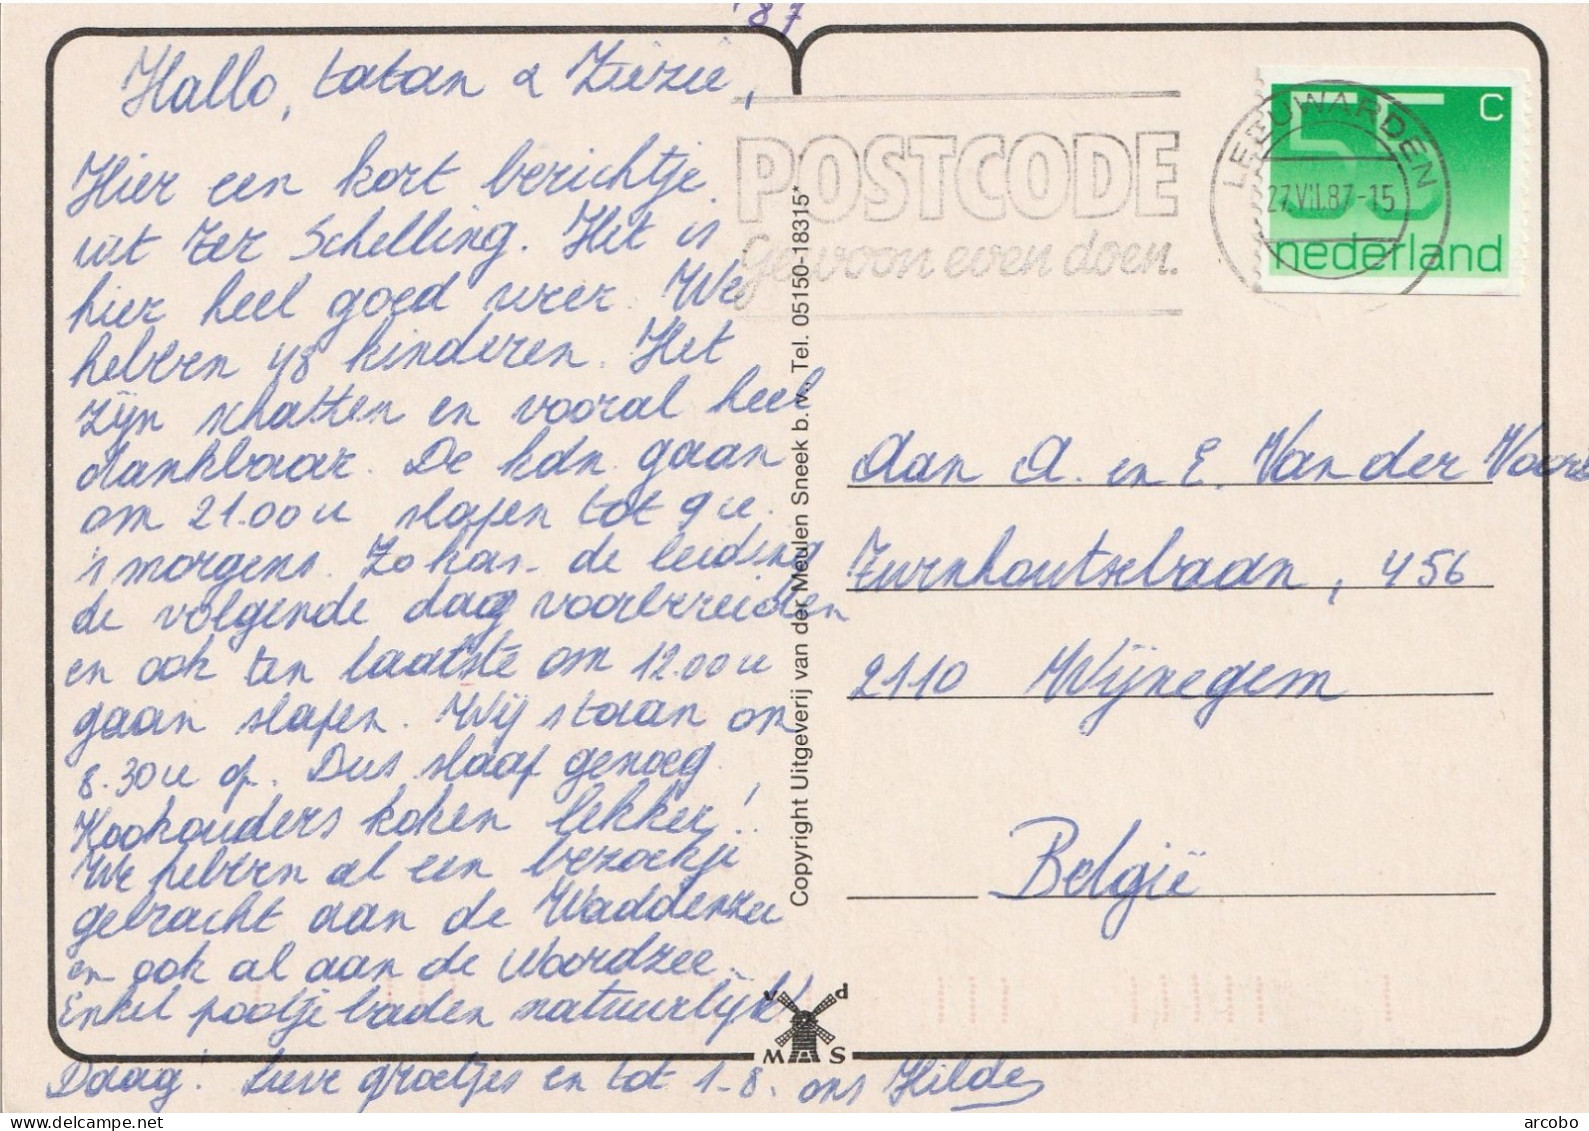 '87
Hallo, tatan & Ziezie,
Hier een kort berichtje
uit Ter Schelling. Het is
hier heel goed weer. We
hebben 48 kinderen. Het
zijn schatten en vooral heel
dankbaar. De kdn. gaan
om 21.00 u slapen tot 9 u.
's morgens. Zo kan de leiding
de volgende dag voorbereiden
en ook ten laatste om 12.00 u
gaan slapen. Wij staan om
8.30 u op. Dus slaap genoeg.
Kookouders koken lekker!
We hebben al een bezoekje
gebracht aan de Waddenzee
en ook al aan de Noordzee.
Enkel pootje baden natuurlijk!
Daag! Lieve groetjes en tot 1-8. ons Hilde
Copyright Uitgeverij van der Meulen Sneek b.v., Tel. 05150-18315*
v d
MAS
POSTCODE
Gewoon even doen.
LEEUWARDEN
27.VII.87-15
55 C
nederland
Aan A. en E. Van der Voor
Turnhoutsebaan, 456
2110 Wijnegem
België
www.delcampe.net
arcobo